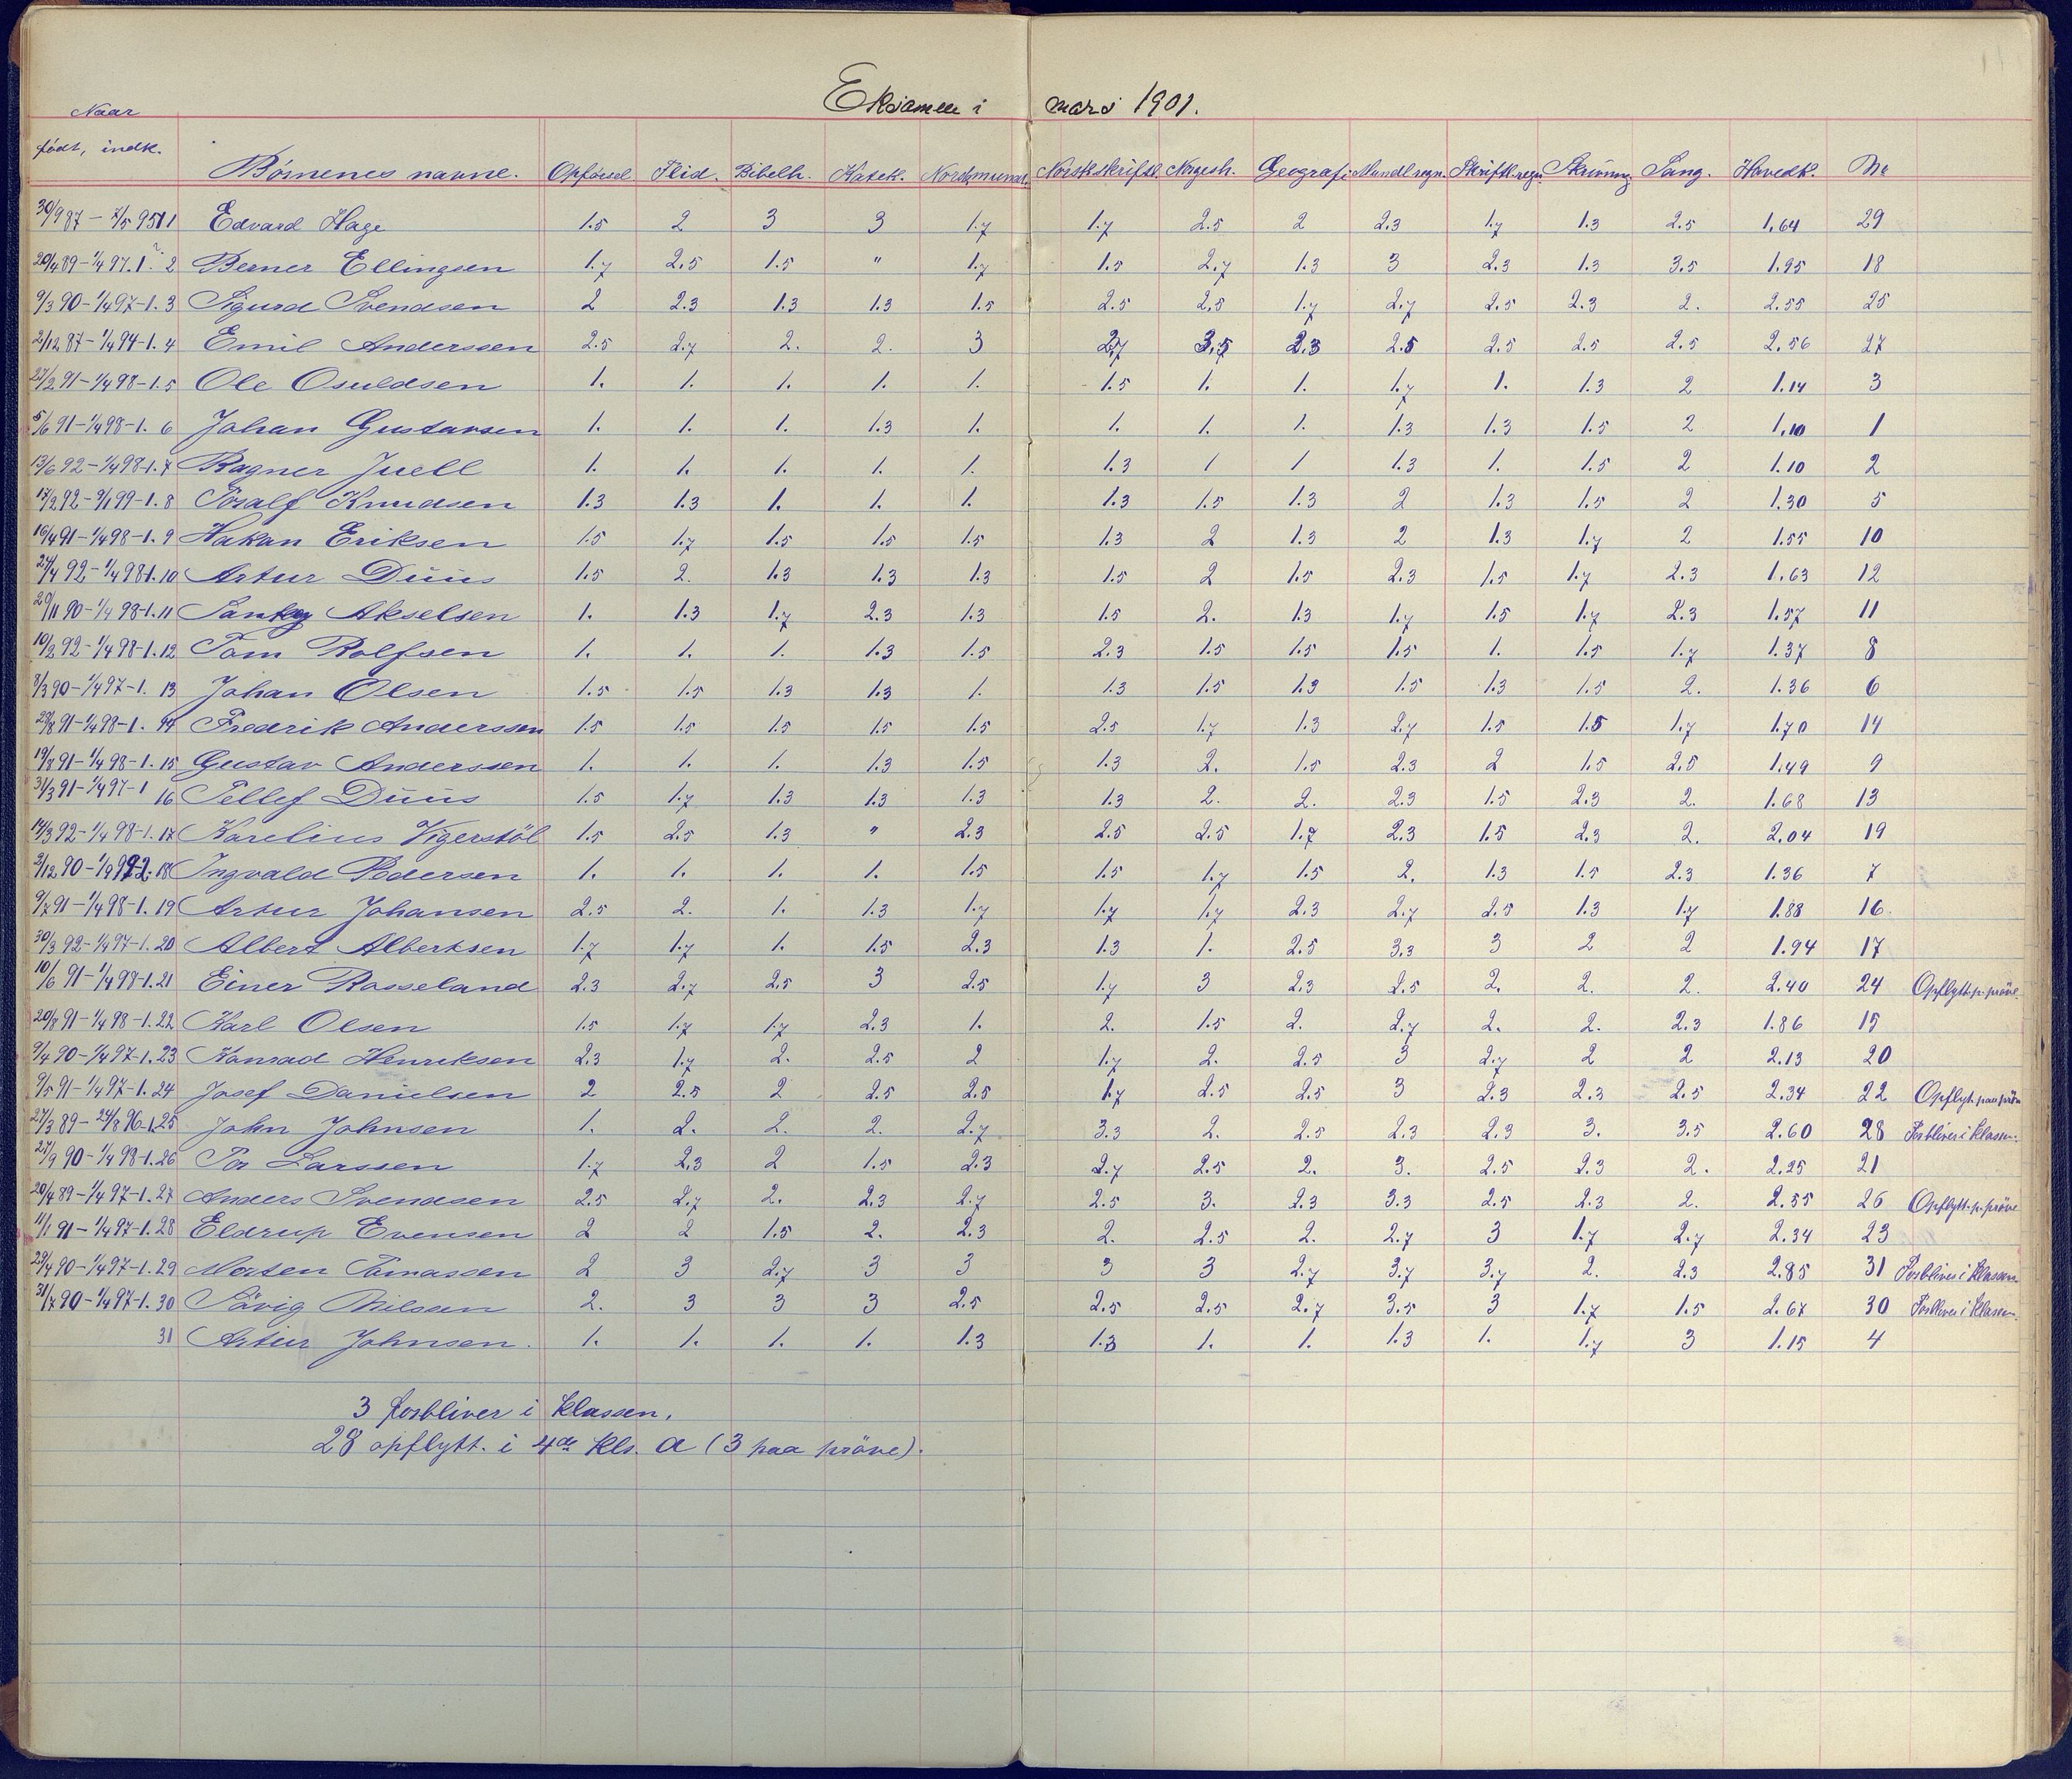 Eksamen i mars 1901.
Naar
født, indk. Børnenes navne. Opførsel Flid. Bibelh. Katek. Norsk mundt. Norsk skriftl. Norgesh. Geografi Mundl. regn. Skriftl. regn. Skrivning Sang. Hovedk. Nr
30/9 87 - 7/5 95 1 1 Edvard Hage 1.5 2 3 3 1.7 1.7 2.5 2 2.3 1.7 1.3 2.5 1.64 29
20/4 89 - 1/4 97. 1. 2 Berner Ellingsen 1.7 2.5 1.5 " 1.7 1.5 2.7 1.3 3 2.3 1.3 3.5 1.95 18
9/3 90 - 1/4 97 - 1. 3 Sigurd Svendsen 2 2.3 1.3 1.3 1.5 2.5 2.5 1.7 2.7 2.5 2.3 2. 2.55 25
2/12 87 - 1/4 94 - 1. 4 Emil Anderssen 2.5 2.7 2. 2. 3 2.7 3.5 2.3 2.5 2.5 2.5 2.5 2.56 27
27/2 91 - 1/4 98 - 1. 5 Ole Osuldsen 1. 1. 1. 1. 1. 1.5 1. 1. 1.7 1. 1.3 2 1.14 3
5/6 91 - 1/4 98 - 1. 6 Johan Gustavsen 1. 1. 1. 1.3 1. 1. 1. 1. 1.3 1.3 1.5 2 1.10 1
13/6 92 - 1/4 98 - 1. 7 Ragner Juell 1. 1. 1. 1. 1. 1.3 1 1 1.3 1. 1.5 2 1.10 2
17/2 92 - 9/1 99 - 1. 8 Toralf Knudsen 1.3 1.3 1. 1. 1. 1.3 1.5 1.3 2 1.3 1.5 2 1.30 5
16/4 91 - 1/4 98 - 1. 9 Hakan Eriksen 1.5 1.7 1.5 1.5 1.5 1.3 2 1.3 2 1.3 1.7 2 1.55 10
24/4 92 - 1/4 98 - 1. 10 Artur Duus 1.5 2. 1.3 1.3 1.3 1.5 2 1.5 2.3 1.5 1.7 2.3 1.63 12
20/11 90 - 1/4 98 - 1. 11 Sankey Akselsen 1. 1.3 1.7 2.3 1.3 1.5 2. 1.3 1.7 1.5 1.7 2.3 1.57 11
10/2 92 - 1/4 98 - 1. 12 Tom Rolfsen 1. 1. 1. 1.3 1.5 2.3 1.5 1.5 1.5 1. 1.5 1.7 1.37 8
8/3 90 - 1/4 97 - 1. 13 Johan Olsen 1.5 1.5 1.3 1.3 1. 1.3 1.5 1.3 1.5 1.3 1.5 2. 1.36 6
29/8 91 - 1/4 98 - 1. 14 Fredrik Anderssen 1.5 1.5 1.5 1.5 1.5 2.5 1.7 1.3 2.7 1.5 1.5 1.7 1.70 14
19/8 91 - 1/4 98 - 1. 15 Gustav Anderssen 1. 1. 1. 1.3 1.5 1.3 2. 1.5 2.3 2 1.5 2.5 1.49 9
31/3 91 - 1/4 97 - 1 16 Tellef Duus 1.5 1.7 1.3 1.3 1.3 1.3 2. 2. 2.3 1.5 2.3 2. 1.68 13
14/3 92 - 1/4 98 - 1. 17 Karelius Vigerstøl 1.5 2.5 1.3 " 2.3 2.5 2.5 1.7 2.3 1.5 2.3 2. 2.04 19
2/12 90 - 1/9 99 2. 18 Ingvald Pedersen 1. 1. 1. 1. 1.5 1.5 1.7 1.5 2. 1.3 1.5 2.3 1.36 7
9/7 91 - 1/4 98 - 1. 19 Artur Johansen 2.5 2. 1. 1.3 1.7 1.7 1.7 2.3 2.7 2.5 1.3 1.7 1.88 16.
30/3 92 - 1/4 97 - 1. 20 Albert Albertsen 1.7 1.7 1. 1.5 2.3 1.3 1. 2.5 3.3 3 2 2 1.94 17
10/6 91 - 1/4 98 - 1. 21 Einer Rosseland 2.3 2.7 2.5 3 2.5 1.7 3 2.3 2.5 2. 2. 2. 2.40 24 Opflytt. p. prøve.
20/8 91 - 1/4 98 - 1. 22 Karl Olsen 1.5 1.7 1.7 2.3 1. 2. 1.5 2. 2.7 2. 2. 2.3 1.86 15
9/4 90 - 1/4 97 - 1. 23 Konrad Henriksen 2.3 1.7 2. 2.5 2 1.7 2. 2.5 3 2.7 2 2 2.13 20
9/5 91 - 1/4 97 - 1. 24 Josef Danielsen 2 2.5 2 2.5 2.5 1.7 2.5 2.5 3 2.3 2.3 2.5 2.34 22 Opflyt. paa prøve
27/3 89 - 24/8 96 - 1. 25 John Johnsen 1. 2. 2. 2. 2.7 3.3 2. 2.5 2.3 2.3 3. 3.5 2.60 28 Forbliver i klassen.
27/9 90 - 1/4 98 - 1. 26 Tor Larssen 1.7 2.3 2 1.5 2.3 2.7 2.5 2. 3. 2.5 2.3 2. 2.25 21
20/4 89 - 1/4 97 - 1. 27 Anders Svendsen 2.5 2.7 2. 2.3 2.7 2.5 3. 2.3 3.3 2.5 2.3 2. 2.55 26 Opflytt. p. prøve
11/1 91 - 1/4 97 - 1. 28 Eldrup Evensen 2 2 1.5 2. 2.3 2. 2.5 2. 2.7 3 1.7 2.7 2.34 23
29/4 90 - 1/4 97 - 1. 29 Morten Tomassen 2 3 2.7 3 3 3 3 2.7 3.7 3.7 2. 2.3 2.85 31 Forbliver i klassen
31/7 90 - 1/4 97 - 1. 30 Søvig Nilssen 2. 3 3 3 2.5 2.5 2.5 2.7 3.5 3 1.7 1.5 2.67 30 Forbliver i klassen.
31 Artur Johnsen. 1. 1. 1. 1. 1.3 1.3 1. 1. 1.3 1. 1.7 3 1.15 4
3 forbliver i klassen.
28 opflytt. i 4de kls. a (3 paa prøve).